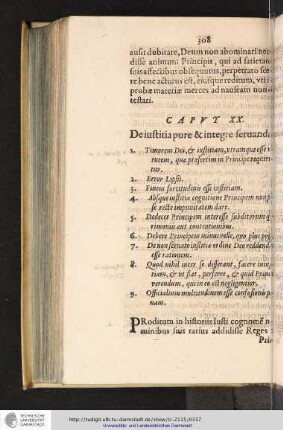 308
ausit dubitare, Deum non abominari nec o
disse animum Principis, qui ad satietatem
suis affectibus obsequutus, perpetrato sce
re bene acturus est, eiusque reditum, vt
probæ materiæ merces ad nauseam non
testari.
CAPVT XX.
De iustitia pure & integre seruanda
1. Timorem Dei, & iustitiam, veram quæ esse v
tutem, quæ præsertim in Principe requiri
tur.
2. Error Lipsii.
3. Finem fortitudinis esse iustitiam.
4. Absque iustitiæ cognitione Principem non p
se recte imperitare dare.
5. Dedecet Principem interesse subditorum q
rimoniis aut contentionibus.
6. Debere Principem minus velle, quo plus po
7. De non seruato iustitiæ ordine Deo reddend
esse rationem.
8. Quod nihil inter se differant, facere iniu
riam, & vt fiat, perferre, & quid Princi
verendum, qui in eo est negligentior.
9. Officialium multitudinem esse confusionis p
nam.
PRoditum in historiis Iusti cognomē n
minibus suis ratius addidisse Reges
Prin
TECHNISCHE
UNIVERSITÄT
DARMSTADT
http://tudigit.ulb.tu-darmstadt.de/show/U-2115/0337
Universitäts- und Landesbibliothek Darmstadt